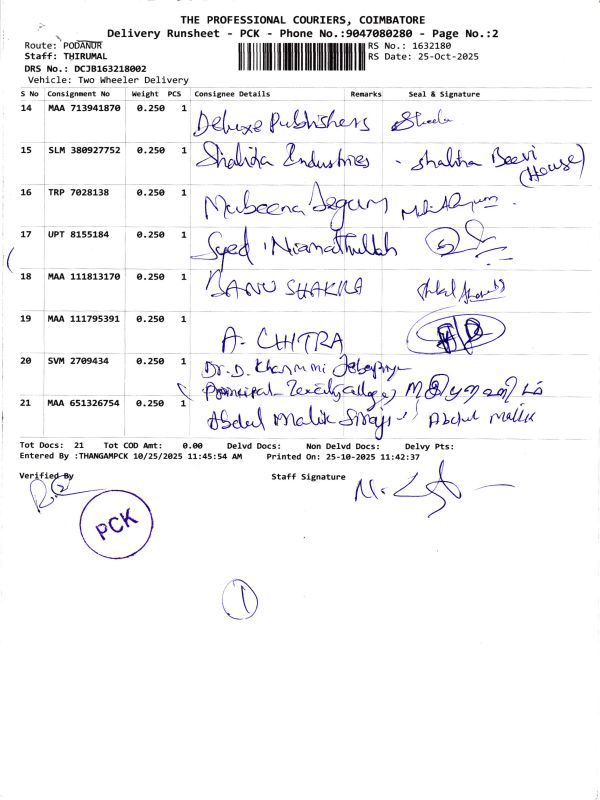 THE PROFESSIONAL COURIERS, COIMBATORE
Delivery Runsheet - PCK - Phone No.:9047080280 - Page No.:2
Route: PODANUR RS No.: 1632180
Staff: THIRUMAL RS Date: 25-Oct-2025
DRS No.: DCJB163218002
Vehicle: Two Wheeler Delivery
S No Consignment No Weight PCS Consignee Details Remarks Seal & Signature
14 MAA 713941870 0.250 1 Deluxe Publishers Sheela
15 SLM 380927752 0.250 1 Shahida Industries - Shahitha Beevi (House)
16 TRP 7028138 0.250 1 Mubeena Begum
17 UPT 8155184 0.250 1 Syed Niamathullah
18 MAA 111813170 0.250 1 BANU SHAKILA
19 MAA 111795391 0.250 1 A. CHITRA
20 SVM 2709434 0.250 1 Dr. D.
Principal
21 MAA 651326754 0.250 1 Abdul Malik Siraj Abdul Malik
Tot Docs: 21 Tot COD Amt: 0.00 Delvd Docs: Non Delvd Docs: Delvy Pts:
Entered By :THANGAMPCK 10/25/2025 11:45:54 AM Printed On: 25-10-2025 11:42:37
Verified By Staff Signature
PCK
1